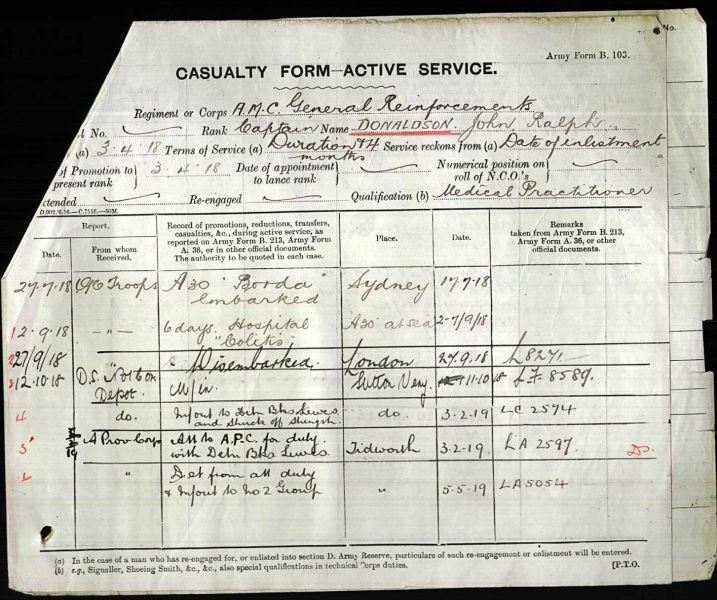 No.
Army Form B. 103.
CASUALTY FORM—ACTIVE SERVICE.
Regiment or Corps A.M.C. General Reinforcements
No. Rank Captain Name DONALDSON. John Ralph.
(a) 3.4.18 Terms of Service (a) Duration & 4 months Service reckons from (a) Date of enlistment
of Promotion to present rank 3.4.18 Date of appointment to lance rank Numerical position on roll of N.C.O.'s
xtended Re-engaged Qualification (b) Medical Practitioner
D.902/6.16.—C.7516.—50M.
Report.
Date.
From whom Received.
Record of promotions, reductions, transfers, casualties, &c., during active service, as reported on Army Form B. 213, Army Form A. 36, or in other official documents. The authority to be quoted in each case.
Place.
Date.
Remarks
taken from Army Form B. 213, Army Form A. 36, or other official documents.
27.7.18 O/C Troops A30 "Borda" Embarked Sydney 17.7.18
1 2.9.18 — " — 6 days. Hospital "Colitis A30 at sea 2-7/9/18
2 27/9/18 " Disembarked. London 27.9.18 L8271
3 12.10.18 D.S. Depot. M/in. Sutton Veny. 11.10.18 LF 8589.
4 do. M/out to Detn Bks Lewes and struck off strength do. 3.2.19 LC 2574
5 A Prov Corps Att to A.P.C. for duty with Detn Bks Lewes. Tidworth 3.2.19. LA 2597.
" Det from att duty & M/out to No 2 Group " 5-5-19 LA5054
(a) In the case of a man who has re-engaged for, or enlisted into section D. Army Reserve, particulars of such re-engagement or enlistment will be entered.
(b) e.g., Signaller, Shoeing Smith, &c., &c., also special qualifications in technical Corps duties. [P.T.O.